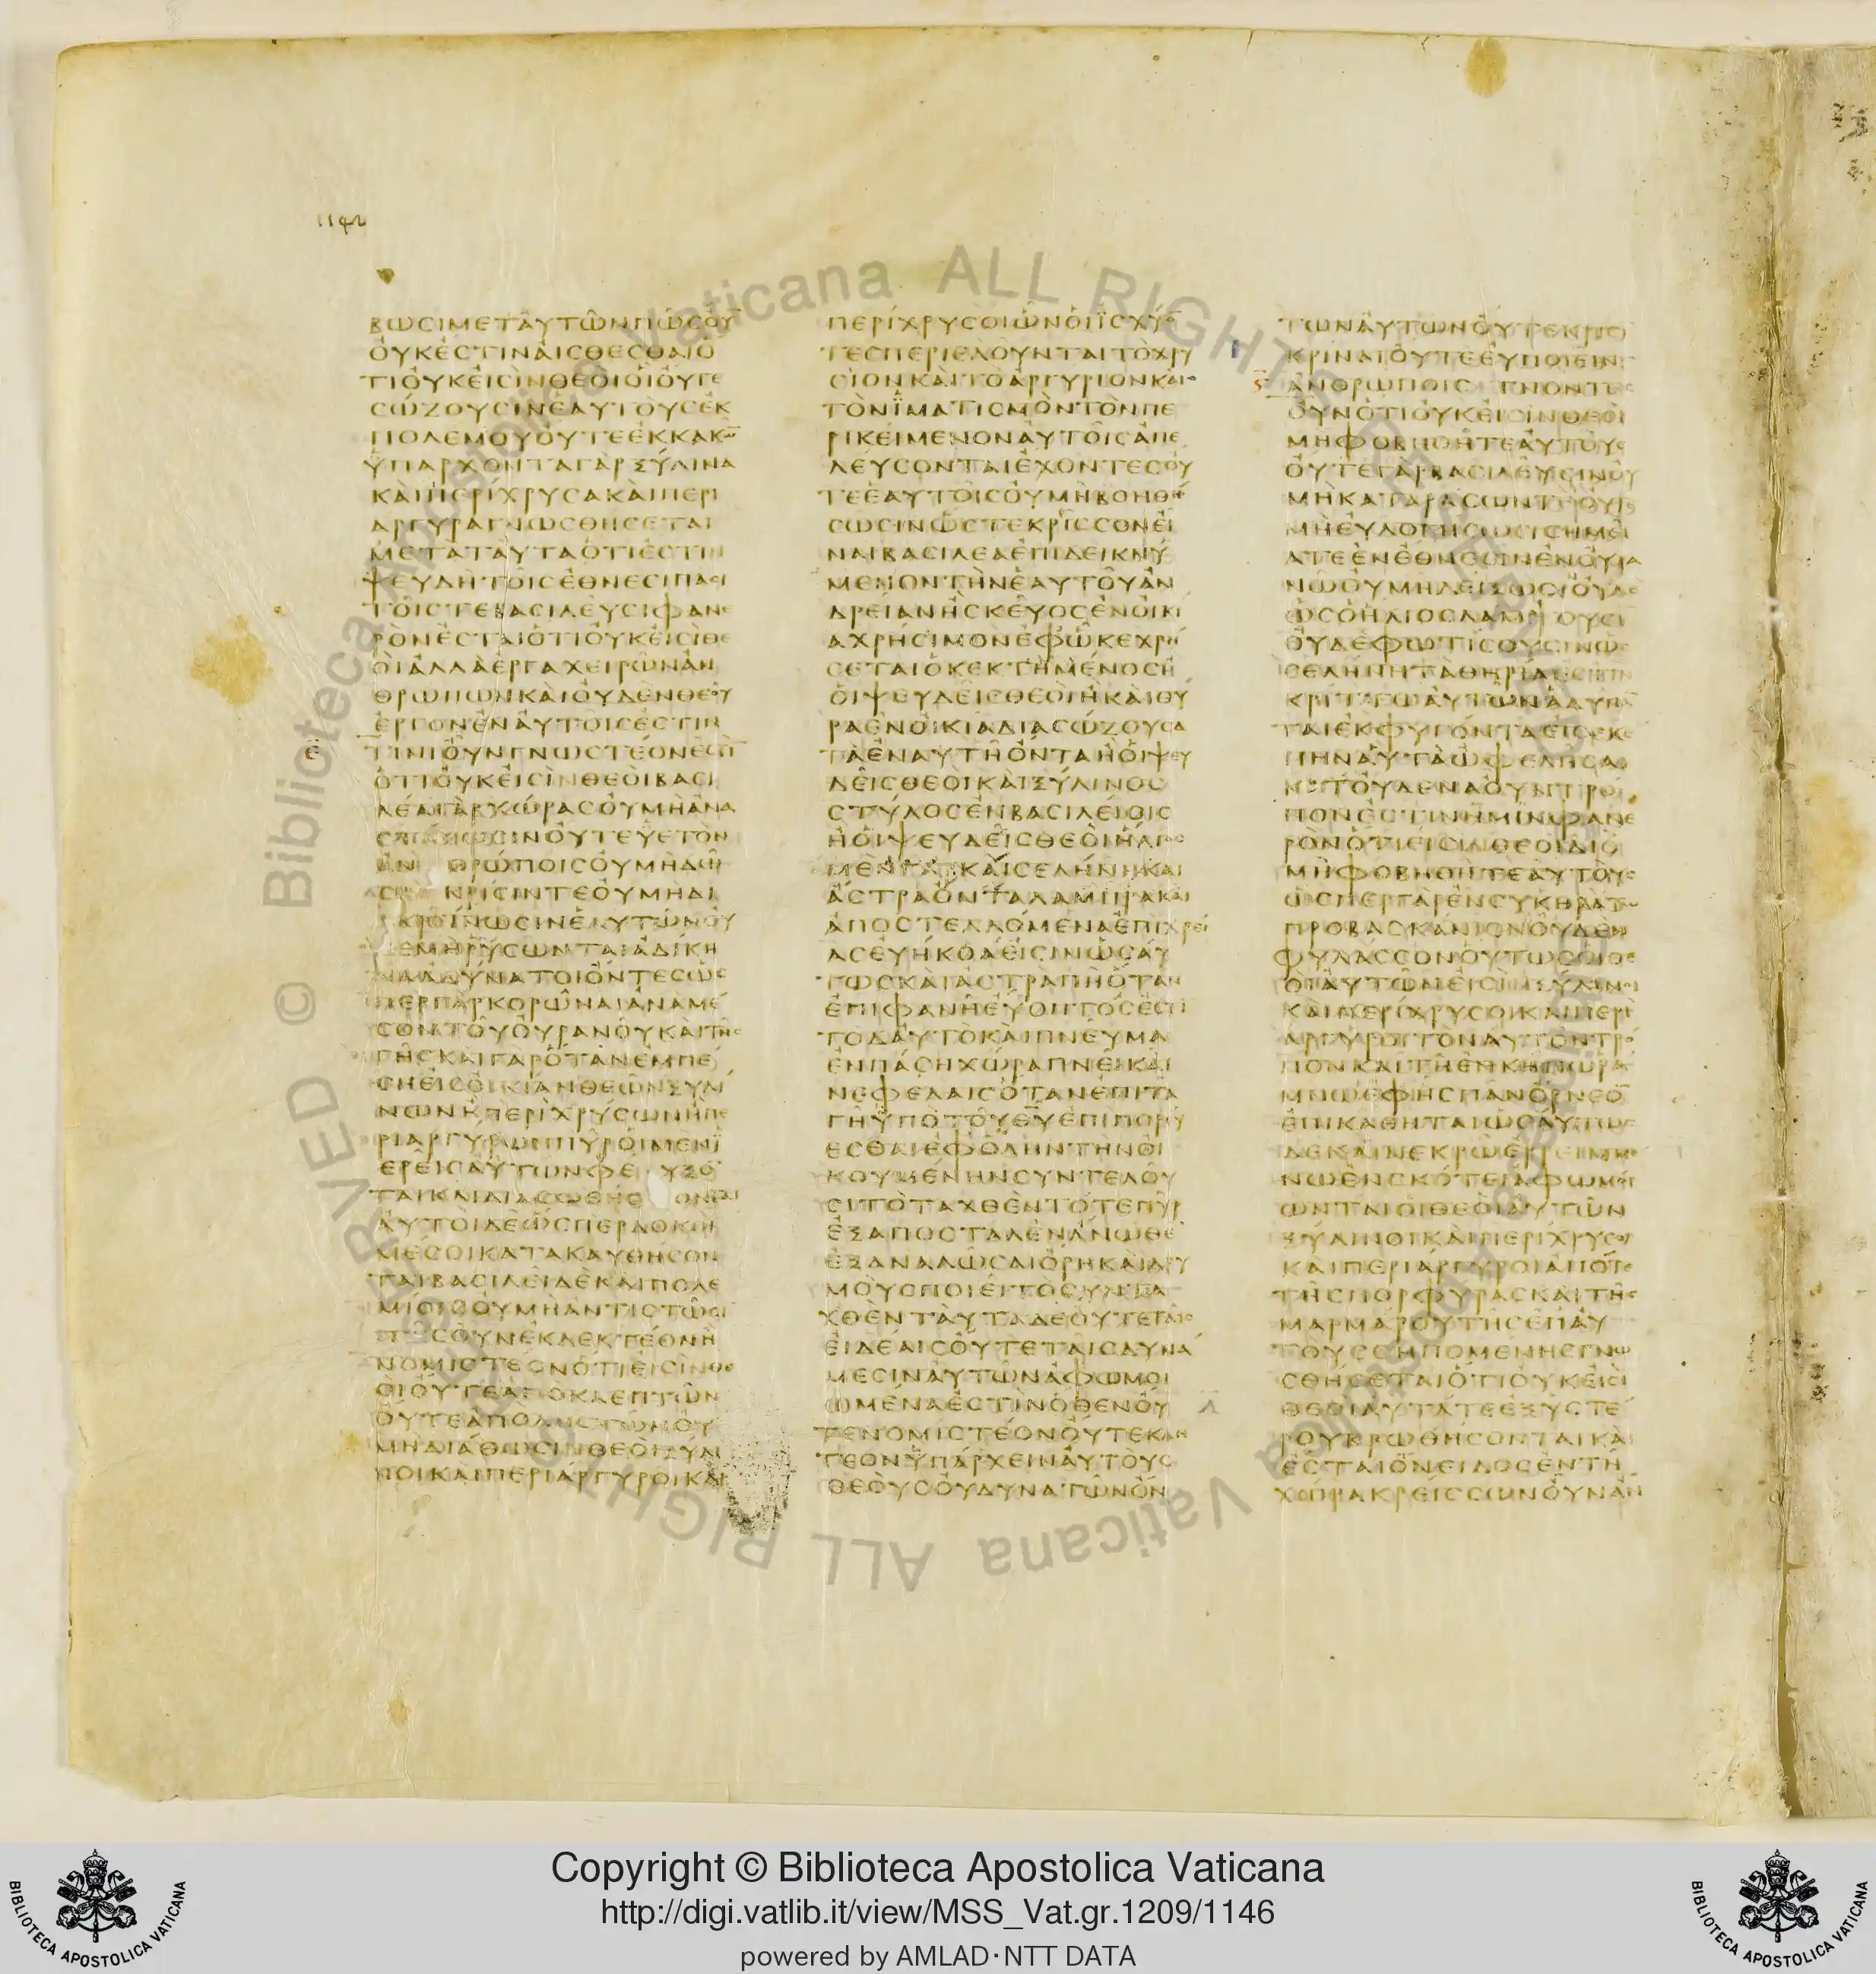 1142
ΒΩϹΙΜΕΤΑΥΤΩΝΠΩϹΟΥ
ΟΥΚΕϹΤΙΝΑΙϹΘΕϹΘΑΙΟ
ΤΙΟΥΚΕΙϹΙΝΘΕΟΙΟΙΟΥΤΕ
ϹΩΖΟΥϹΙΝΕΑΥΤΟΥϹΕΚ
ΠΟΛΕΜΟΥΟΥΤΕΕΚΚΑΚΩ
ΫΠΑΡΧΟΝΤΑΓΑΡΞΥΛΙΝΑ
ΚΑΙΠΕΡΙΧΡΥϹΑΚΑΙΠΕΡΙ
ΑΡΓΥΡΑΓΝΩϹΘΗϹΕΤΑΙ
ΜΕΤΑΤΑΥΤΑΟΤΙΕϹΤΙΝ
ΨΕΥΔΗΤΟΙϹΕΘΝΕϹΙΠΑϹΙ
ΤΟΙϹΤΕΒΑϹΙΛΕΥϹΙΦΑΝΕ
ΡΟΝΕϹΤΑΙΟΤΙΟΥΚΕΙϹΙΘΕ
ΟΙΑΛΛΑΕΡΓΑΧΕΙΡΩΝΑΝ
ΘΡΩΠΩΝΚΑΙΟΥΔΕΝΘΕΟΥ
ΕΡΓΟΝΕΝΑΥΤΟΙϹΕϹΤΙΝ
Ε ΤΙΝΙΟΥΝΓΝΩϹΤΕΟΝΕϹΤΙ
ΟΤΙΟΥΚΕΙϹΙΝΘΕΟΙΒΑϹΙ
ΛΕΑΓΑΡΧΩΡΑϹΟΥΜΗΑΝΑ
ϹΤΗϹΩϹΙΝΟΥΤΕΥΕΤΟΝ
ΑΝΘΡΩΠΟΙϹΟΥΜΗΔΩ
ϹΙΝΚΡΙϹΙΝΤΕΟΥΜΗΔΙ
ΑΚΡΙΝΩϹΙΝΕΑΥΤΩΝΟΥ
ΔΕΜΗΡΥϹΩΝΤΑΙΑΔΙΚΗ
ΜΑΑΔΥΝΑΤΟΙΟΝΤΕϹΩϹ
ΠΕΡΓΑΡΚΟΡΩΝΑΙΑΝΑΜΕ
ϹΟΝΤΟΥΟΥΡΑΝΟΥΚΑΙΤΗϹ
ΓΗϹΚΑΙΓΑΡΟΤΑΝΕΜΠΕ
ϹΗΕΙϹΟΙΚΙΑΝΘΕΩΝΞΥΛΙ
ΝΩΝΗΠΕΡΙΧΡΥϹΩΝΗΠΕ
ΡΙΑΡΓΥΡΩΝΠΥΡΟΙΜΕΝΪ
ΕΡΕΙϹΑΥΤΩΝΦΕΥΞΟ
ΤΑΙΚΑΙΔΙΑϹΩΘΗϹΟΝΤΑΙ
ΑΥΤΟΙΔΕΩϹΠΕΡΔΟΚΟΙ
ΜΕϹΟΙΚΑΤΑΚΑΥΘΗϹΟΝ
ΤΑΙΒΑϹΙΛΕΙΔΕΚΑΙΠΟΛΕ
ΜΙΟΙϹΟΥΜΗΑΝΤΙϹΤΩϹΙ
ΠΩϹΟΥΝΕΚΔΕΚΤΕΟΝΗ
ΝΟΜΙϹΤΕΟΝΟΤΙΕΙϹΙΝΘΕ
ΟΙΟΥΤΕΑΠΟΚΛΕΠΤΩΝ
ΟΥΤΕΑΠΟΛΗϹΤΩΝΟΥ
ΜΗΔΙΑΘΩϹΙΝΘΕΟΙΞΥΛΙ
ΝΟΙΚΑΙΠΕΡΙΑΡΓΥΡΟΙΚΑΙ
ΠΕΡΙΧΡΥϹΟΙΩΝΟΙΪϹΧΥΟ
ΤΕϹΠΕΡΙΕΛΟΥΝΤΑΙΤΟΧΡΥ
ϹΙΟΝΚΑΙΤΟΑΡΓΥΡΙΟΝΚΑΙ
ΤΟΝΪΜΑΤΙϹΜΟΝΤΟΝΠΕ
ΡΙΚΕΙΜΕΝΟΝΑΥΤΟΙϹΑΠΕ
ΛΕΥϹΟΝΤΑΙΕΧΟΝΤΕϹΟΥ
ΤΕΕΑΥΤΟΙϹΟΥΜΗΒΟΗΘΗ
ϹΩϹΙΝΩϹΤΕΚΡΙϹϹΟΝΕΙ
ΝΑΙΒΑϹΙΛΕΑΕΠΙΔΕΙΚΝΥ
ΜΕΝΟΝΤΗΝΕΑΥΤΟΥΑΝ
ΔΡΕΙΑΝΗϹΚΕΥΟϹΕΝΟΙΚΙ
ΑΧΡΗϹΙΜΟΝΕΦΩΚΕΧΡΗ
ϹΕΤΑΙΟΚΕΚΤΗΜΕΝΟϹΗ
ΟΙΨΕΥΔΕΙϹΘΕΟΙΗΚΑΙΘΥ
ΡΑΕΝΟΙΚΙΑΔΙΑϹΩΖΟΥϹΑ
ΤΑΕΝΑΥΤΗΟΝΤΑΗΟΙΨΕΥ
ΔΕΙϹΘΕΟΙΚΑΙΞΥΛΙΝΟϹ
ϹΤΥΛΟϹΕΝΒΑϹΙΛΕΙΟΙϹ
ΗΟΙΨΕΥΔΕΙϹΘΕΟΙΗΛΙΟϹ
ΜΕΝΓΑΡΚΑΙϹΕΛΗΝΗΚΑΙ
ΑϹΤΡΑΟΝΤΑΛΑΜΠΡΑΚΑΙ
ΑΠΟϹΤΕΛΛΟΜΕΝΑΕΠΙΧΡΕΙ
ΑϹΕΥΗΚΟΑΕΙϹΙΝΩϹΑΥ
ΤΩϹΚΑΙΑϹΤΡΑΠΗΟΤΑΝ
ΕΠΙΦΑΝΗΕΥΟΠΤΟϹΕϹΤΙ
ΤΟΔΑΥΤΟΚΑΙΠΝΕΥΜΑ
ΕΝΠΑϹΗΧΩΡΑΠΝΕΙΚΑΙ
ΝΕΦΕΛΑΙϹΟΤΑΝΕΠΙΤΑ
ΓΗΫΠΟΤΟΥΘΥΕΠΙΠΟΡΕΥ
ΕϹΘΑΙΕΦΟΛΗΝΤΗΝΟΙ
ΚΟΥΜΕΝΗΝϹΥΝΤΕΛΟΥ
ϹΙΤΟΤΑΧΘΕΝΤΟΤΕΠΥΡ
ΕΞΑΠΟϹΤΑΛΕΝΑΝΩΘΕ
ΕΞΑΝΑΛΩϹΑΙΟΡΗΚΑΙΔΡΥ
ΜΟΥϹΠΟΙΕΙΤΟϹΥΝΤΑ
ΧΘΕΝΤΑΥΤΑΔΕΟΥΤΕΤΑΙϹ
ΕΙΔΕΑΙϹΟΥΤΕΤΑΙϹΔΥΝΑ
ΜΕϹΙΝΑΥΤΩΝΑΦΩΜΟΙ
ΩΜΕΝΑΕϹΤΙΝΟΘΕΝΟΥ
ΤΕΝΟΜΙϹΤΕΟΝΟΥΤΕΚΛΗ
ΤΕΟΝΫΠΑΡΧΕΙΝΑΥΤΟΥϹ
ΘΕΟΥϹΟΥΔΥΝΑΤΩΝΟΝ
ΤΩΝΑΥΤΩΝΟΥΤΕΚΡΙϹΙ
ΚΡΙΝΑΙΟΥΤΕΕΥΠΟΙΕΙΝ
Ϛ ΑΝΘΡΩΠΟΙϹ ΓΝΟΝΤΕϹ
ΟΥΝΟΤΙΟΥΚΕΙϹΙΝΘΕΟΙ
ΜΗΦΟΒΗΘΗΤΕΑΥΤΟΥϹ
ΟΥΤΕΓΑΡΒΑϹΙΛΕΥϹΙΝΟΥ
ΜΗΚΑΤΑΡΑϹΩΝΤΑΙΟΥΤΕ
ΜΗΕΥΛΟΓΗϹΩϹΙϹΗΜΕΙ
ΑΤΕΕΝΕΘΝΕϹΙΝΕΝΟΥΡΑ
ΝΩΟΥΜΗΔΕΙΞΩϹΙΟΥΔΕ
ΩϹΟΗΛΙΟϹΛΑΜΨΟΥϹΙ
ΟΥΔΕΦΩΤΙϹΟΥϹΙΝΩϹ
ϹΕΛΗΝΗΤΑΘΗΡΙΑΕϹΤΙΝ
ΚΡΙΤΤΩΑΥΤΩΝΑΔΥΝΑ
ΤΑΙΕΚΦΥΓΟΝΤΑΕΙϹϹΚΕ
ΠΗΝΑΥΤΑΩΦΕΛΗϹΑΙ
ΚΑΤΟΥΔΕΝΑΟΥΝΤΡΟ
ΠΟΝΕϹΤΙΝΗΜΙΝΦΑΝΕ
ΡΟΝΟΤΙΕΙϹΙΝΘΕΟΙΔΙΟ
ΜΗΦΟΒΗΘΗΤΕΑΥΤΟΥϹ
ΩϹΠΕΡΓΑΡΕΝϹΥΚΗΡΑΤΩ
ΠΡΟΒΑϹΚΑΝΙΟΝΟΥΔΕΝ
ΦΥΛΑϹϹΟΝΟΥΤΩϹΟΙΘΕ
ΟΙΑΥΤΩΝΕΙϹΙΝΞΥΛΙΝΟΙ
ΚΑΙΠΕΡΙΧΡΥϹΟΙΚΑΙΠΕΡΙ
ΑΡΓΥΡΟΙΤΟΝΑΥΤΟΝΤΡΟ
ΠΟΝΚΑΙΤΗΕΝΚΗΠΩΡΑ
ΜΝΩΕΦΗϹΠΑΝΟΡΝΕΟ
ΕΠΙΚΑΘΗΤΑΙΩϹΑΥΤΩϹ
ΔΕΚΑΙΝΕΚΡΩΕΡΡΕΙΜΜΕ
ΝΩΕΝϹΚΟΤΕΙΑΦΩΜΟΙ
ΩΝΤΑΙΟΙΘΕΟΙΑΥΤΩΝ
ΞΥΛΙΝΟΙΚΑΙΠΕΡΙΧΡΥϹΟΙ
ΚΑΙΠΕΡΙΑΡΓΥΡΟΙΑΠΟΤΕ
ΤΗϹΠΟΡΦΥΡΑϹΚΑΙΤΗϹ
ΜΑΡΜΑΡΟΥΤΗϹΕΠΑΥ
ΤΟΥϹϹΗΠΟΜΕΝΗϹΓΝΩ
ϹΘΗϹΕΤΑΙΟΤΙΟΥΚΕΙϹΙ
ΘΕΟΙΑΥΤΑΤΕΕΞΥϹΤΕ
ΡΟΥΒΡΩΘΗϹΟΝΤΑΙΚΑΙ
ΕϹΤΑΙΟΝΕΙΔΟϹΕΝΤΗ
ΧΩΡΑΚΡΕΙϹϹΩΝΟΥΝΑΝ
Copyright © Biblioteca Apostolica Vaticana
http://digi.vatlib.it/view/MSS_Vat.gr.1209/1146
powered by AMLAD·NTT DATA